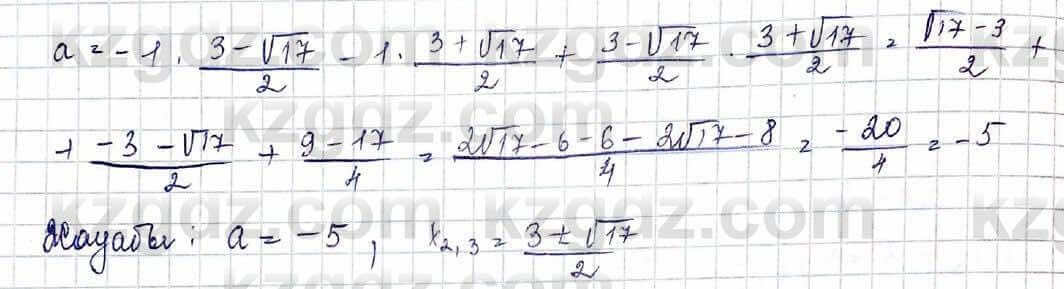 a = -1 · (3 - √17)/2 - 1 · (3 + √17)/2 + (3 - √17)/2 · (3 + √17)/2 = (√17 - 3)/2 +
+ (-3 - √17)/2 + (9 - 17)/4 = (2√17 - 6 - 6 - 2√17 - 8)/4 = -20/4 = -5
Жауабы: a = -5, x₂,₃ = (3 ± √17)/2
kzgdz.com